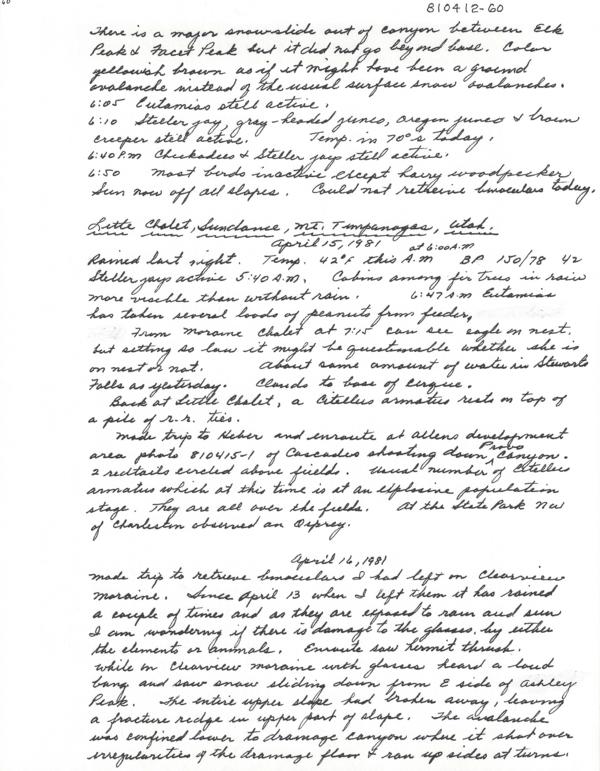 810412-60
There is a major snowslide out of canyon between Elk
Peak & Facet Peak but it did not go beyond base. Color
yellowish brown as if it might have been a ground
avalanche instead of the usual surface snow avalanches.
6:05 Eutamias still active.
6:10 Steller jay, gray-headed junco, oregon junco & brown
creeper still active. Temp. in 70°s today.
6:40 P.M Chickadees & Steller jays still active.
6:50 Most birds inactive except hairy woodpecker
Sun now off all slopes. Could not retreive binoculars today.
Little Chalet, Sundance, Mt. Timpanogos, Utah.
April 15, 1981
at 6:00 A.M
Rained last night. Temp. 42°F this A.M BP 150/78 42
Steller jays active 5:40 A.M. Cabins among fir trees in rain
more visible than without rain. 6:47 A.M Eutamias
has taken several loads of peanuts from feeder.
From Moraine Chalet at 7:15 can see eagle on nest,
but setting so low it might be questionable whether she is
on nest or not. About same amount of water in Stewarts
Falls as yesterday. Clouds to base of cirque.
Back at Little Chalet, a Citellus armatus rests on top of
a pile of r.r. ties.
Made trip to Heber and enroute at Allens development
area photo 810415-1 of Cascades shooting down Provo Canyon.
2 redtails circled above fields. Usual number of Citellus
armatus which at this time is at an explosive population
stage. They are all over the fields. At the State Park NW
of Charleston observed an Osprey.
April 16, 1981
Made trip to retrieve binoculars I had left on Clearview
Moraine. Since April 13 when I left them it has rained
a couple of times and as they are exposed to rain and sun
I am wondering if there is damage to the glasses, by either
the elements or animals. Enroute saw hermit thrush.
While on Clearview moraine with glasses heard a loud
bang and saw snow sliding down from E side of Ashley
Peak. The entire upper slope had broken away, leaving
a fracture ridge in upper part of slope. The avalanche
was confined lower to drainage canyon where it shot over
irregularities of the drainage floor & ran up sides at turns.